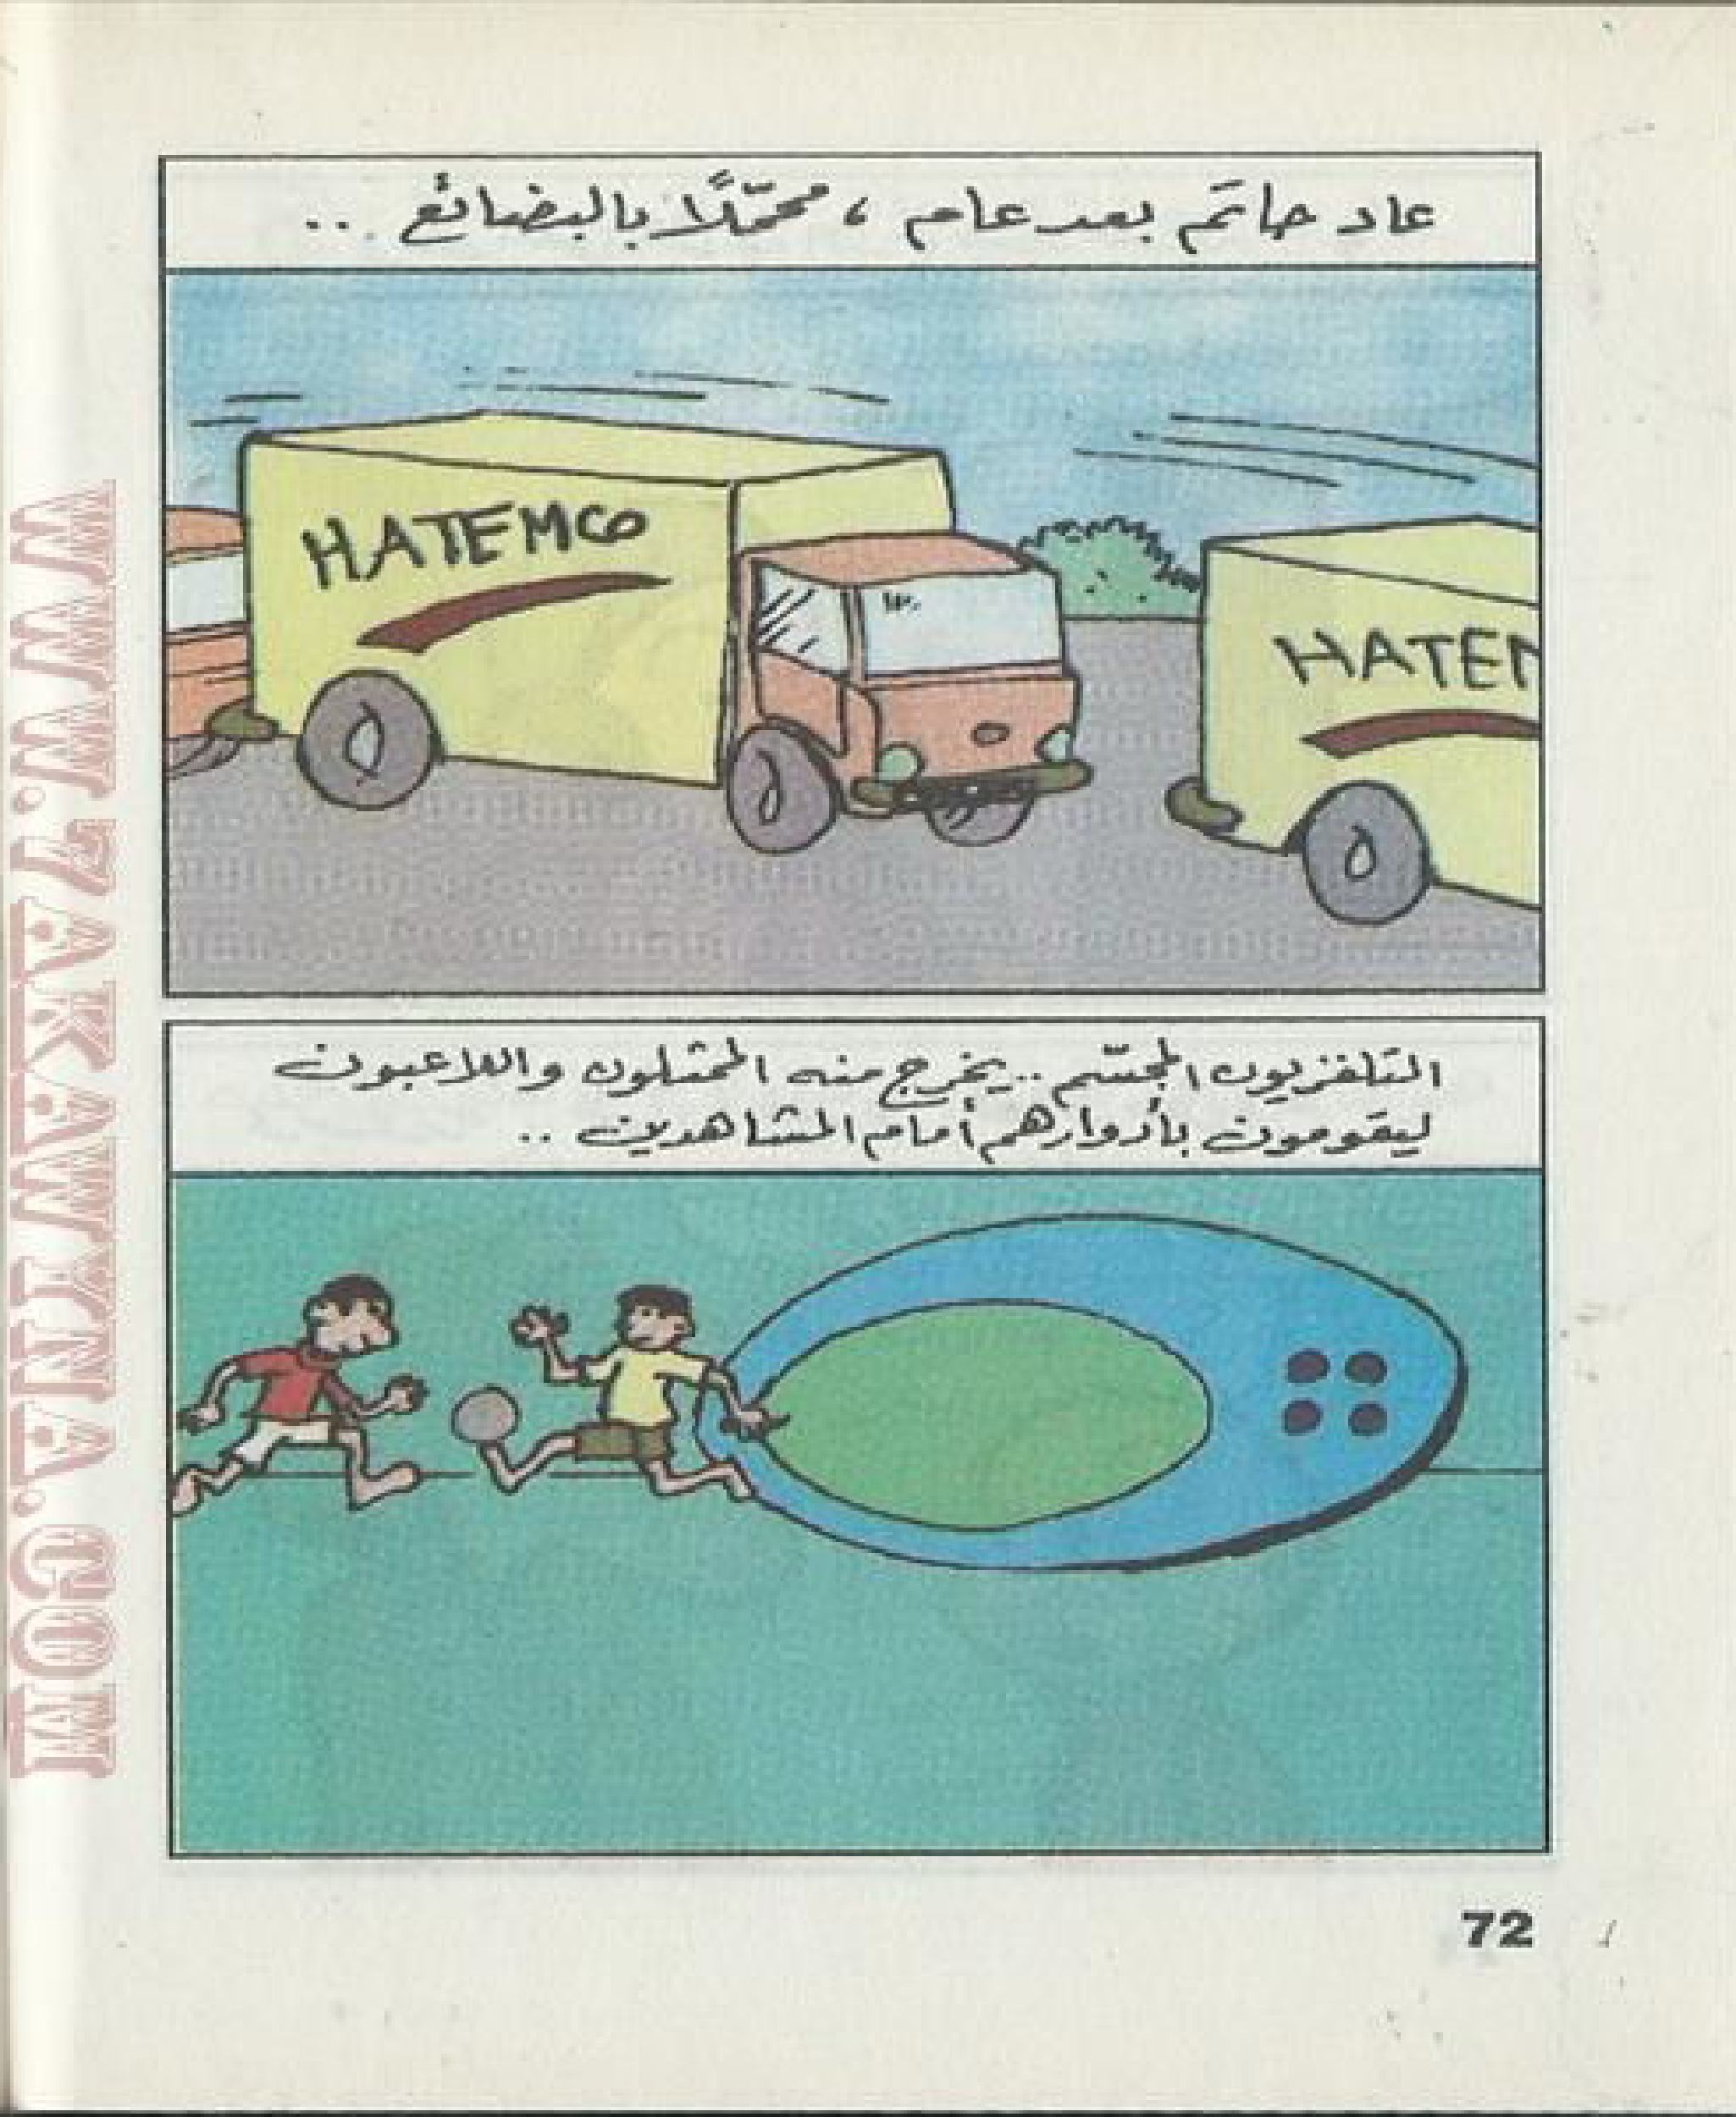 عاد حاتم بعد عام ، محمّلًا بالبضائع ..
HATEMCO
HATEM
التلفزيون المجسّم .. يخرج منه الممثلون واللاعبون
ليقومون بأدوارهم أمام المشاهدين ..
72
WWW.7AKAWINA.COM